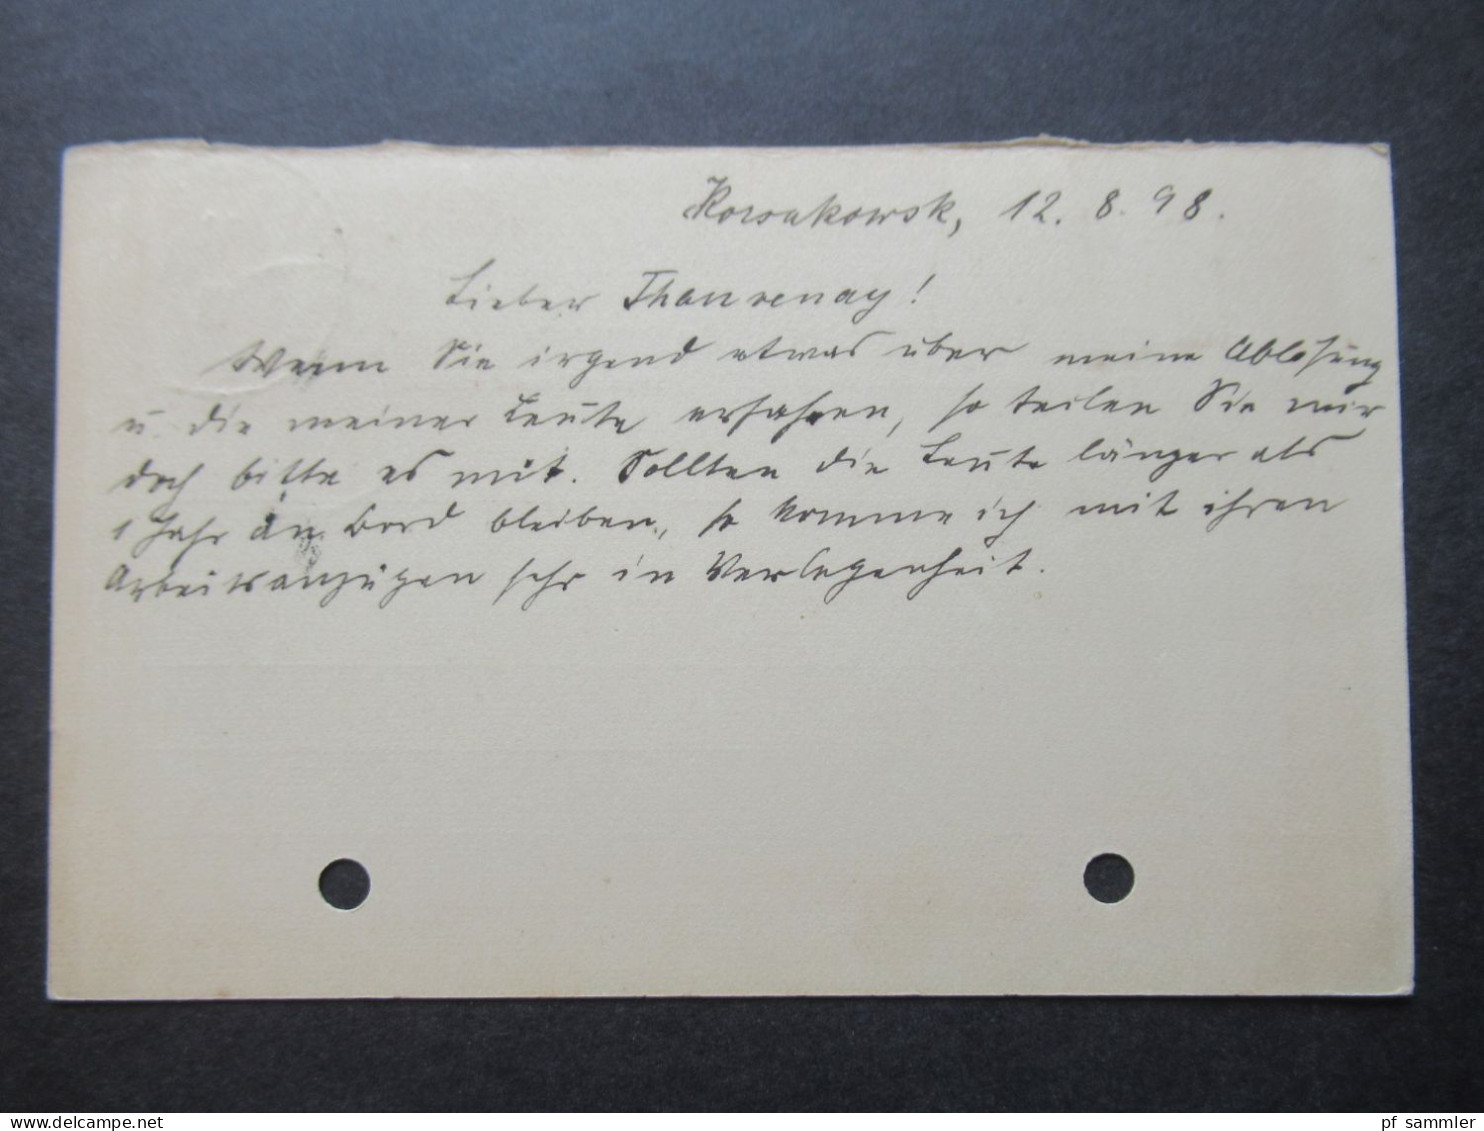 Korsakowsk, 12. 8. 98.
Lieber Thauvenay!
Wenn Sie irgend etwas über meine Ablösung
u. die meiner Leute erfahren, so teilen Sie mir
doch bitte es mit. Sollten die Leute länger als
1 Jahr an Bord bleiben, so komme ich mit ihren
Arbeitsanzügen sehr in Verlegenheit.
www.delcampe.net
pf_sammler